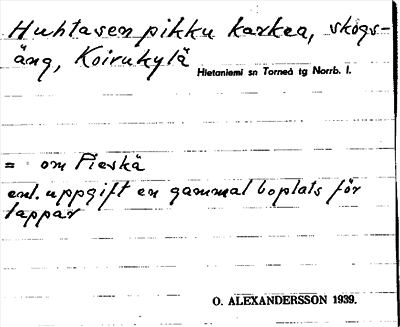 Huhtasen pikku karkea, skogs-
äng, Koirukylä
Hietaniemi sn Torneå tg Norrb. l.
= om Pieskä
enl. uppgift en gammal boplats för
lappar
O. ALEXANDERSSON 1939.